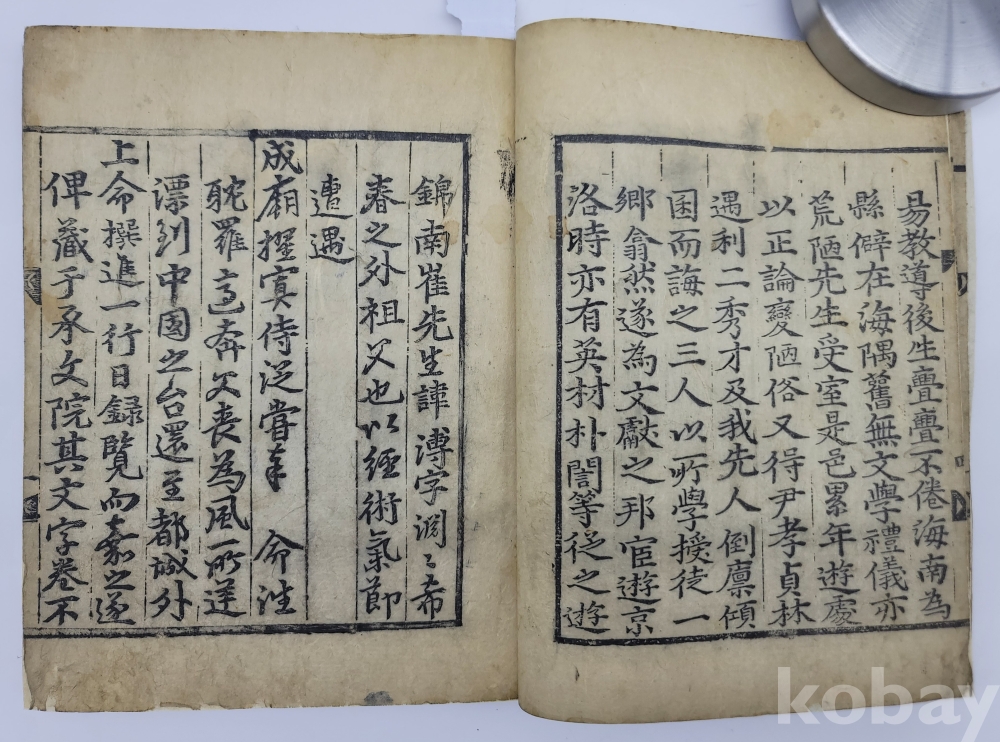 易教導後生亹亹不倦海南為
縣僻在海隅舊無文學禮儀亦
荒陋先生受室是邑累年遊處
以正論變陋俗又得尹孝貞林
遇利二秀才及我先人倒廩傾
囷而誨之三人以所學授徒一
鄉翕然遂為文獻之邦宦遊京
洛時亦有英材朴誾等從之遊
錦南崔先生諱溥字淵〻希
春之外祖父也以經術氣節
遭遇
成廟擢寘侍從嘗奉 命往
耽羅奔父喪為風所逆
漂到中國之台還至都城外
上命撰進一行日錄覽而嘉之遂
俾藏于承文院其文字卷不
kobay